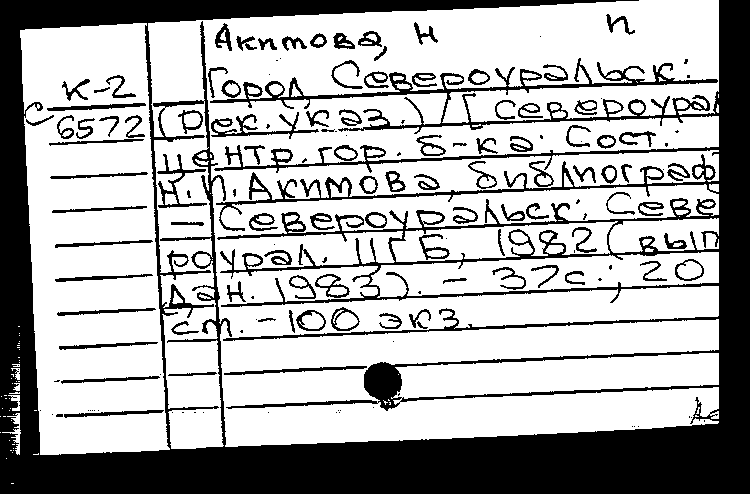 Акимова, Н П
К-2 Город Североуральск:
С 6572 (рек. указ.) / [Североурал
центр. гор. б-ка; Сост.:
Н.П. Акимова, библиограф
— Североуральск: Севе
роурал. ЦГБ, 1982 (вып
дан. 1983). – 37с.; 20
см. – 100 экз.